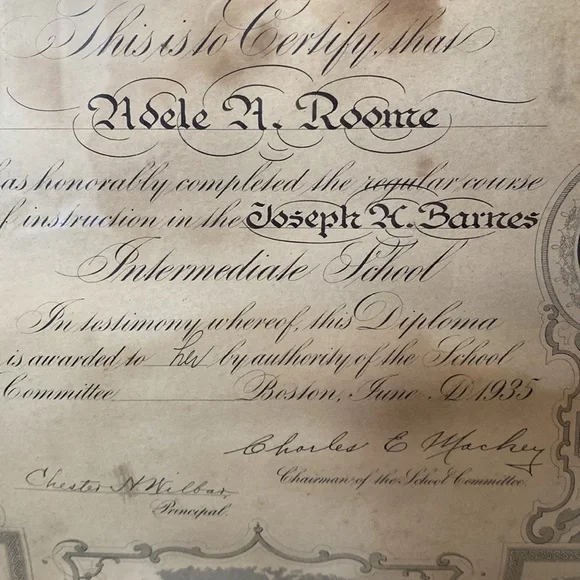 This is to Certify, that
Adele A. Roome
has honorably completed the regular course
of instruction in the Joseph H. Barnes
Intermediate School
In testimony whereof, this Diploma
is awarded to her by authority of the School
Committee Boston, June AD 1935
Charles E Mackey
Chairman of the School Committee.
Chester H Wilbar
Principal.